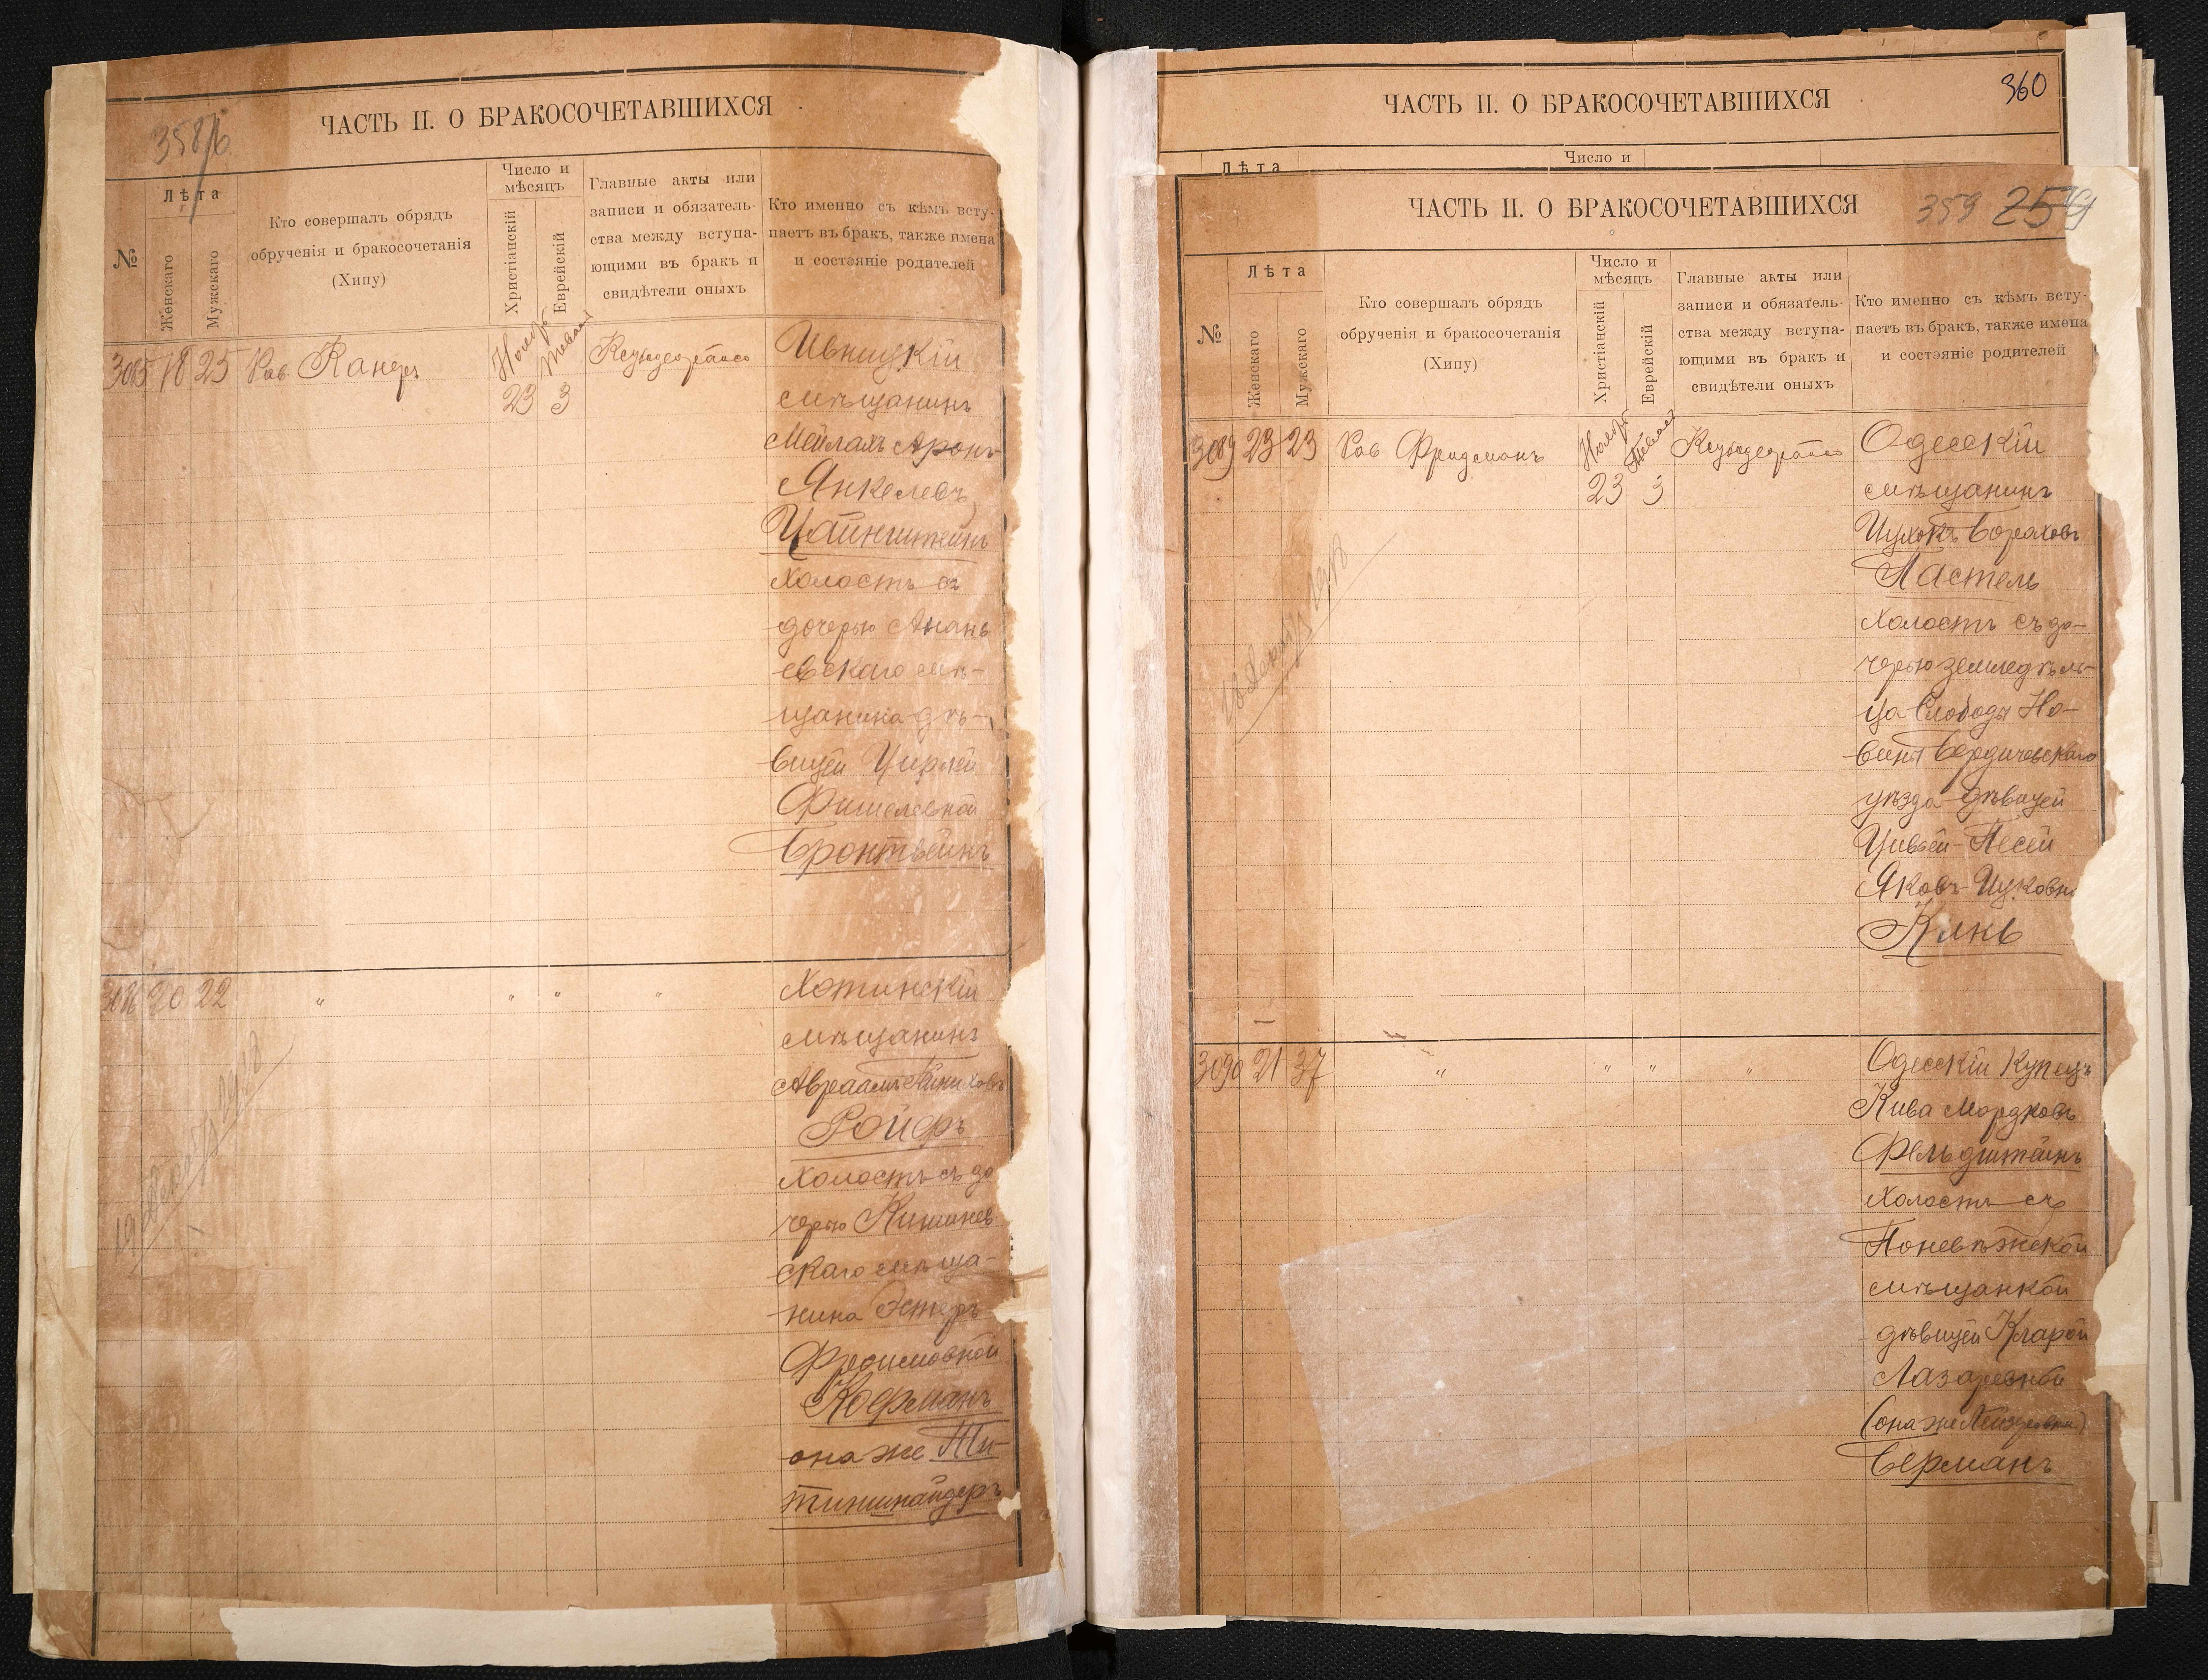 ЧАСТЬ II. О БРАКОСОЧЕТАВШИХСЯ
№
Лѣта
Женскаго
Мужскаго
Кто совершалъ обрядъ
обрученія и бракосочетанія
(Хипу)
Число и
мѣсяцъ
Христіанскій
Еврейскій
Главные акты или
записи и обязатель-
ства между вступа-
ющими въ бракъ и
свидѣтели оныхъ
Кто именно съ кѣмъ всту-
паетъ въ бракъ, также имена
и состояніе родителей
3085 18 25 Рав
23 3
мѣщанинъ
Мейлахъ Аронъ
Янкелевъ
Цайнштейнъ
Холостъ съ
дочерью Анань
евскаго мѣ-
щанина дѣ-
вицей Цирлей
Фишелевной
Бронтвейнъ
3086 20 22 " " " "
Хотинскій
мѣщанинъ
Авраамъ
Ройфъ
Холостъ съ до
черью Кишинев
скаго мѣща-
нина Эстеръ
Фроимовной
Кофманъ
она же
ЧАСТЬ II. О БРАКОСОЧЕТАВШИХСЯ
360
Лѣта
Число и
ЧАСТЬ II. О БРАКОСОЧЕТАВШИХСЯ
359
№
Лѣта
Женскаго
Мужскаго
Кто совершалъ обрядъ
обрученія и бракосочетанія
(Хипу)
Число и
мѣсяцъ
Христіанскій
Еврейскій
Главные акты или
записи и обязатель-
ства между вступа-
ющими въ бракъ и
свидѣтели оныхъ
Кто именно съ кѣмъ всту-
паетъ въ бракъ, также имена
и состояніе родителей
3089 23 23 Рав Фридманъ
23 3
Одесскій
мѣщанинъ
Ицхокъ Бораховъ
Пастель
Холостъ съ до-
черью земледѣль-
ца Слободы Но-
Бердичевскаго
уѣзда дѣвицей
Цивьей-Песей
Яковъ-Ицковн
3090 21 37 " " " "
Одесскій Купецъ
Кива Мордковъ
Фельдштейнъ
Холостъ съ
Поневѣжской
мѣщанкой
дѣвицей Кларой
Лазаревной
(она же Лейзеровна)
Берманъ